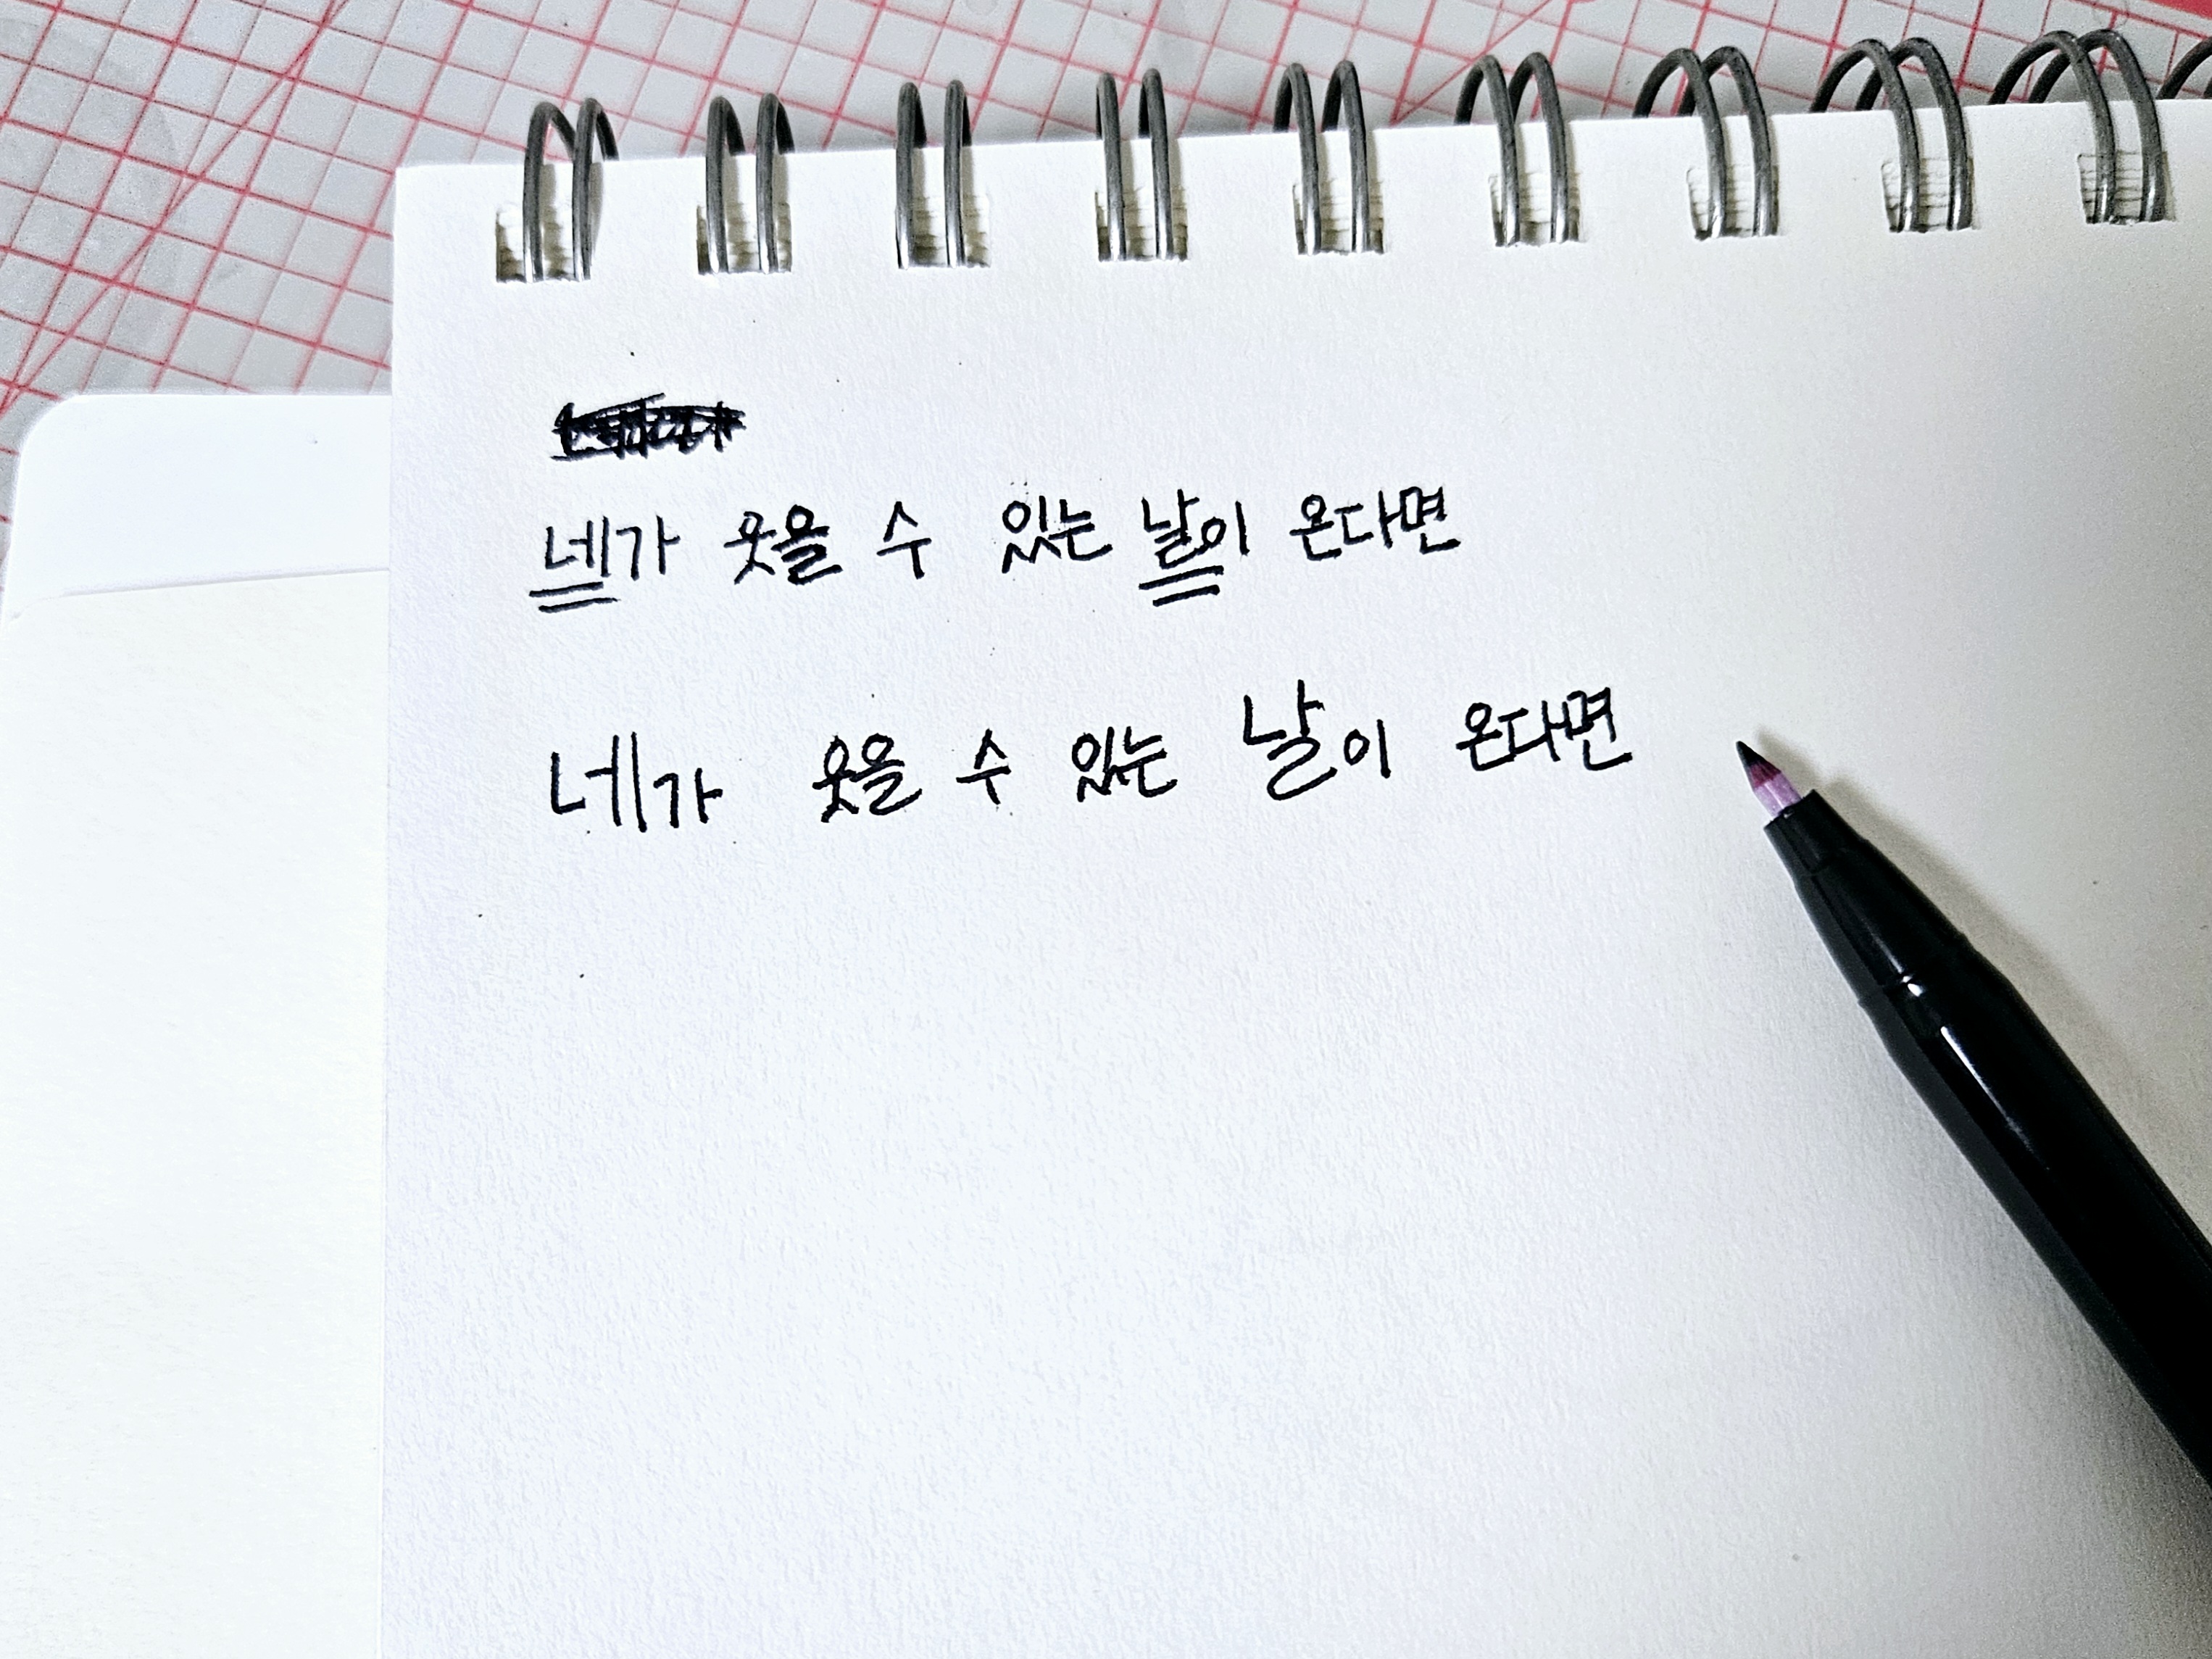 네가 웃을 수 있는 날이 온다면
네가 웃을 수 있는 날이 온다면